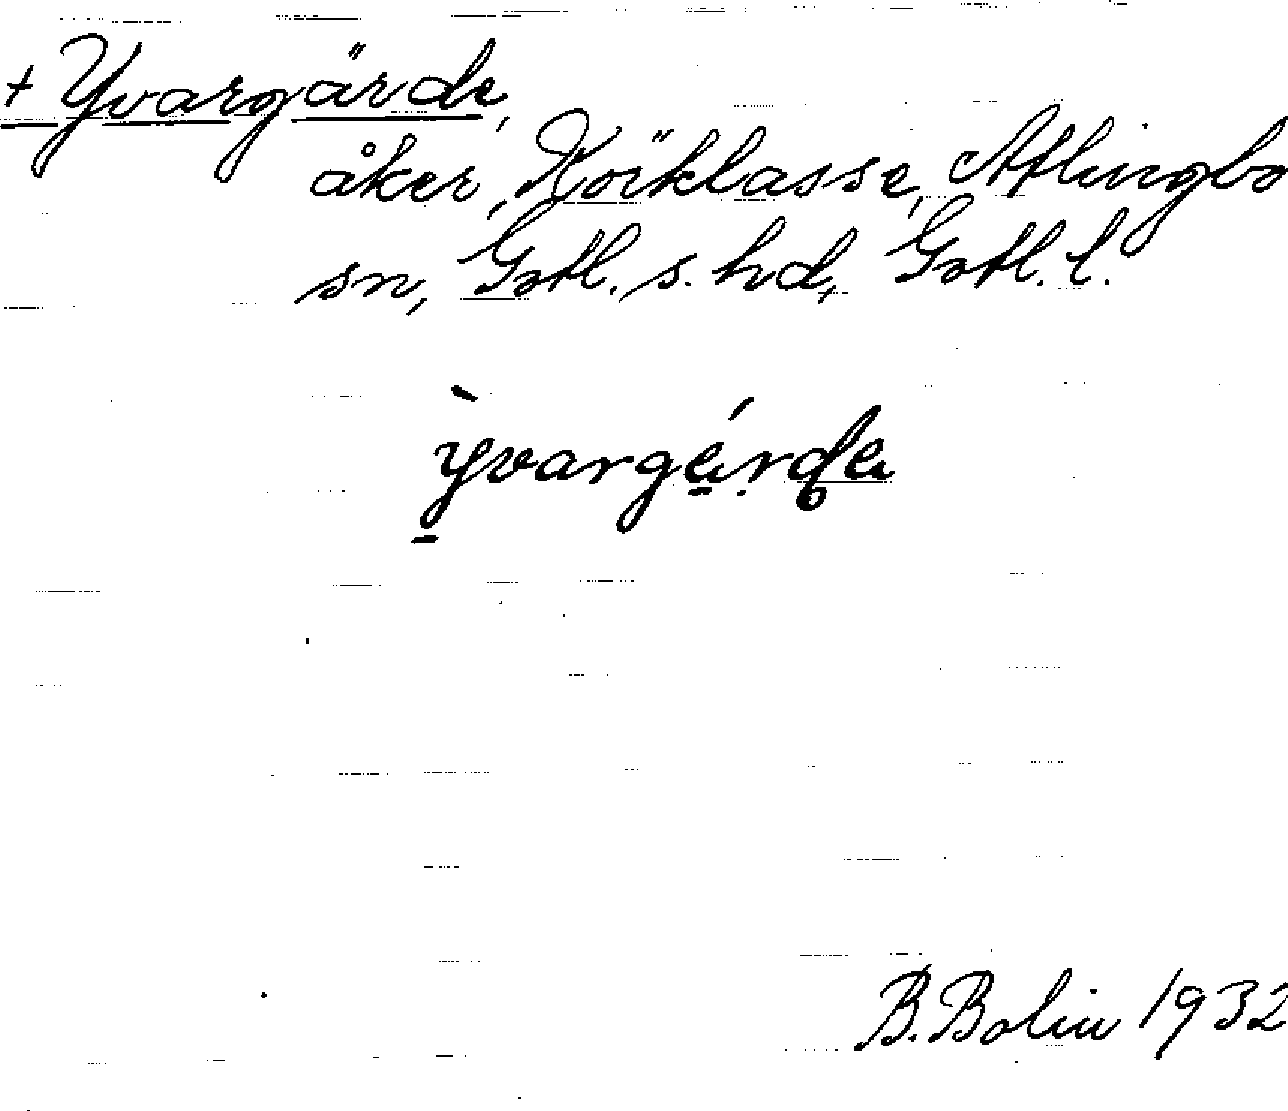 + Yvargärde,
åker, Körklasse, Atlingbo
sn, Gotl. s. hd, Gotl. l.
ỳvargárde
B. Bolin 1932